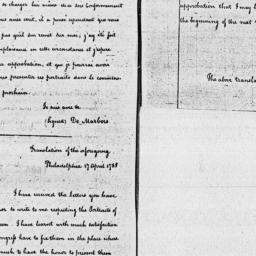 se charger lui même de ce
vous avez écrit, il a
pas qu'il s'en remet sur moi, j'ay été fort
complaisance en cette circonstance et j'espere
approbation, et que je pourrai avoir
vous presenter ces portraits dans le commence-
prochain.
Je suis avec &c
(Signed) De Marbois
Translation of the aforegoing
Philadelphia 17 April 1785
I have received the letters you have
to write to me respecting the Portraits of
I have learnt with much satisfaction
to fix them in the place where
much to have the honor to present them
approbation that I may
the beginning of the next
The above transla